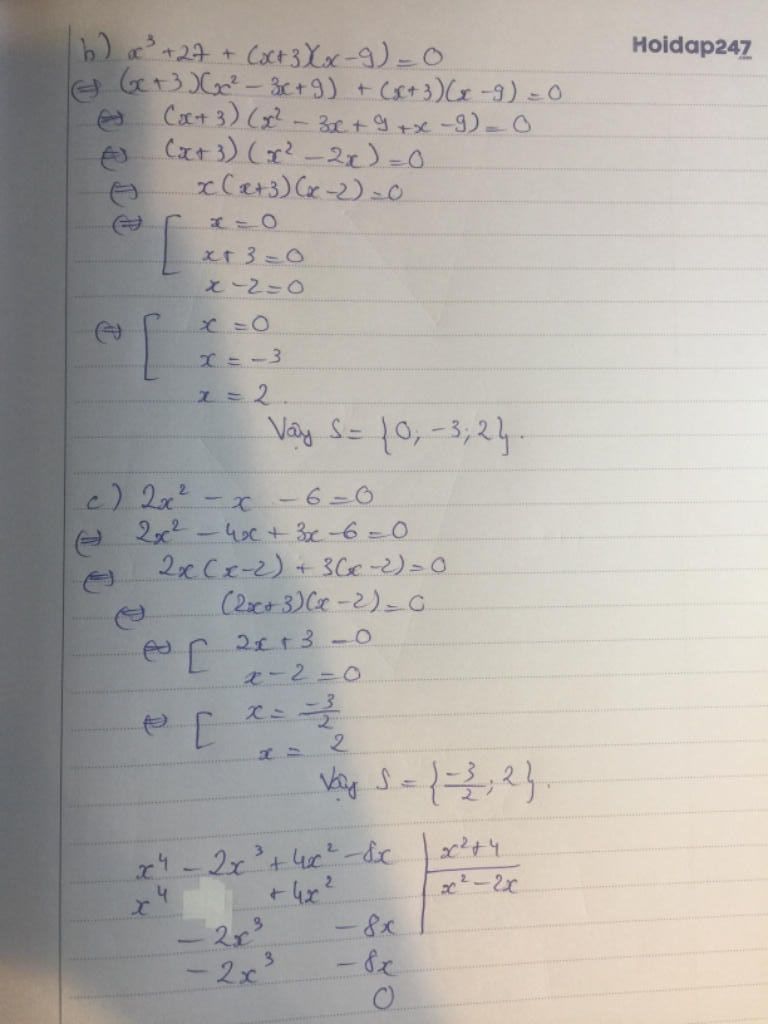 Hoidap247.com
b) x³ + 27 + (x+3)(x-9) = 0
⇔ (x+3)(x² - 3x + 9) + (x+3)(x-9) = 0
⇔ (x+3)(x² - 3x + 9 + x - 9) = 0
⇔ (x+3)(x² - 2x) = 0
⇔ x(x+3)(x-2) = 0
⇔ [ x = 0
x + 3 = 0
x - 2 = 0
⇔ [ x = 0
x = -3
x = 2.
Vậy S = {0; -3; 2}.
c) 2x² - x - 6 = 0
⇔ 2x² - 4x + 3x - 6 = 0
⇔ 2x(x-2) + 3(x-2) = 0
⇔ (2x+3)(x-2) = 0
⇔ [ 2x + 3 = 0
x - 2 = 0
⇔ [ x = -3/2
x = 2
Vậy S = {-3/2; 2}.
x⁴ - 2x³ + 4x² - 8x | x² + 4
x⁴ + 4x² | x² - 2x
- 2x³ - 8x
- 2x³ - 8x
0